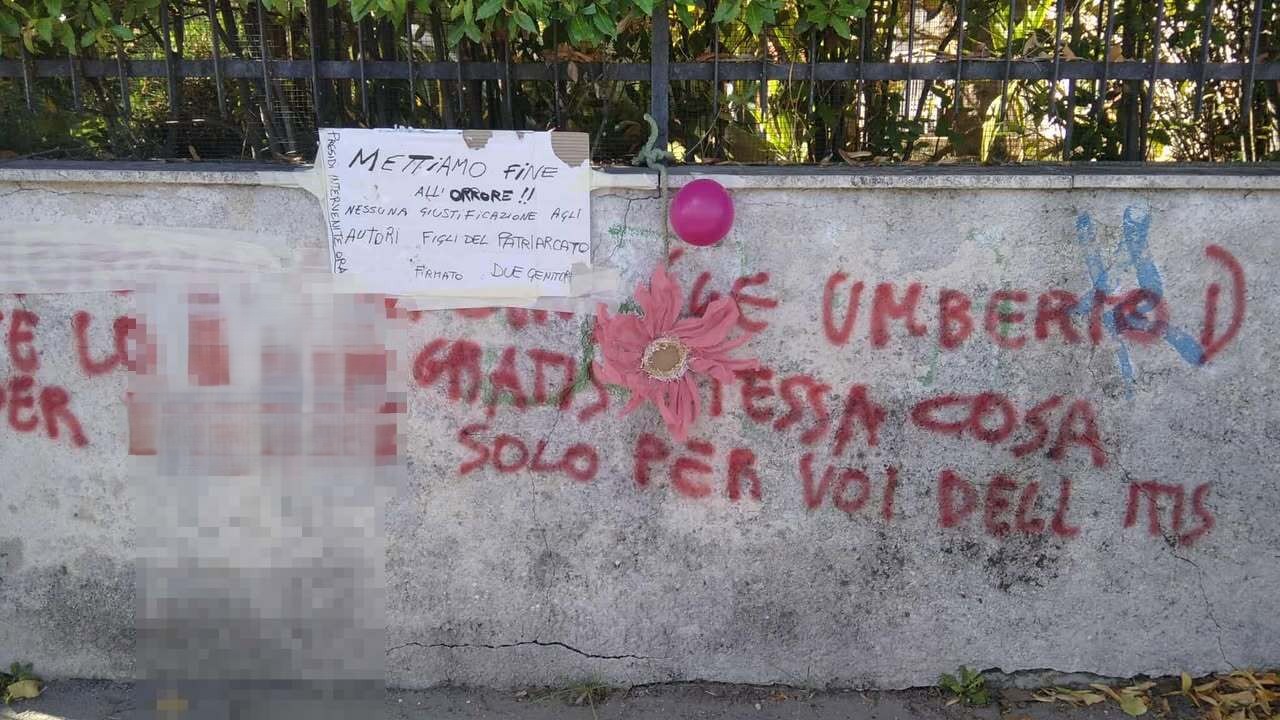 METTIAMO FINE
ALL' ORRORE !!
NESSUNA GIUSTIFICAZIONE AGLI
AUTORI FIGLI DEL PATRIARCATO
FIRMATO DUE GENITORI
PRESIDI INTERVENITE ORA
E LO UMBERTO D
PER GRATIS STESSA COSA
SOLO PER VOI DELL ITIS